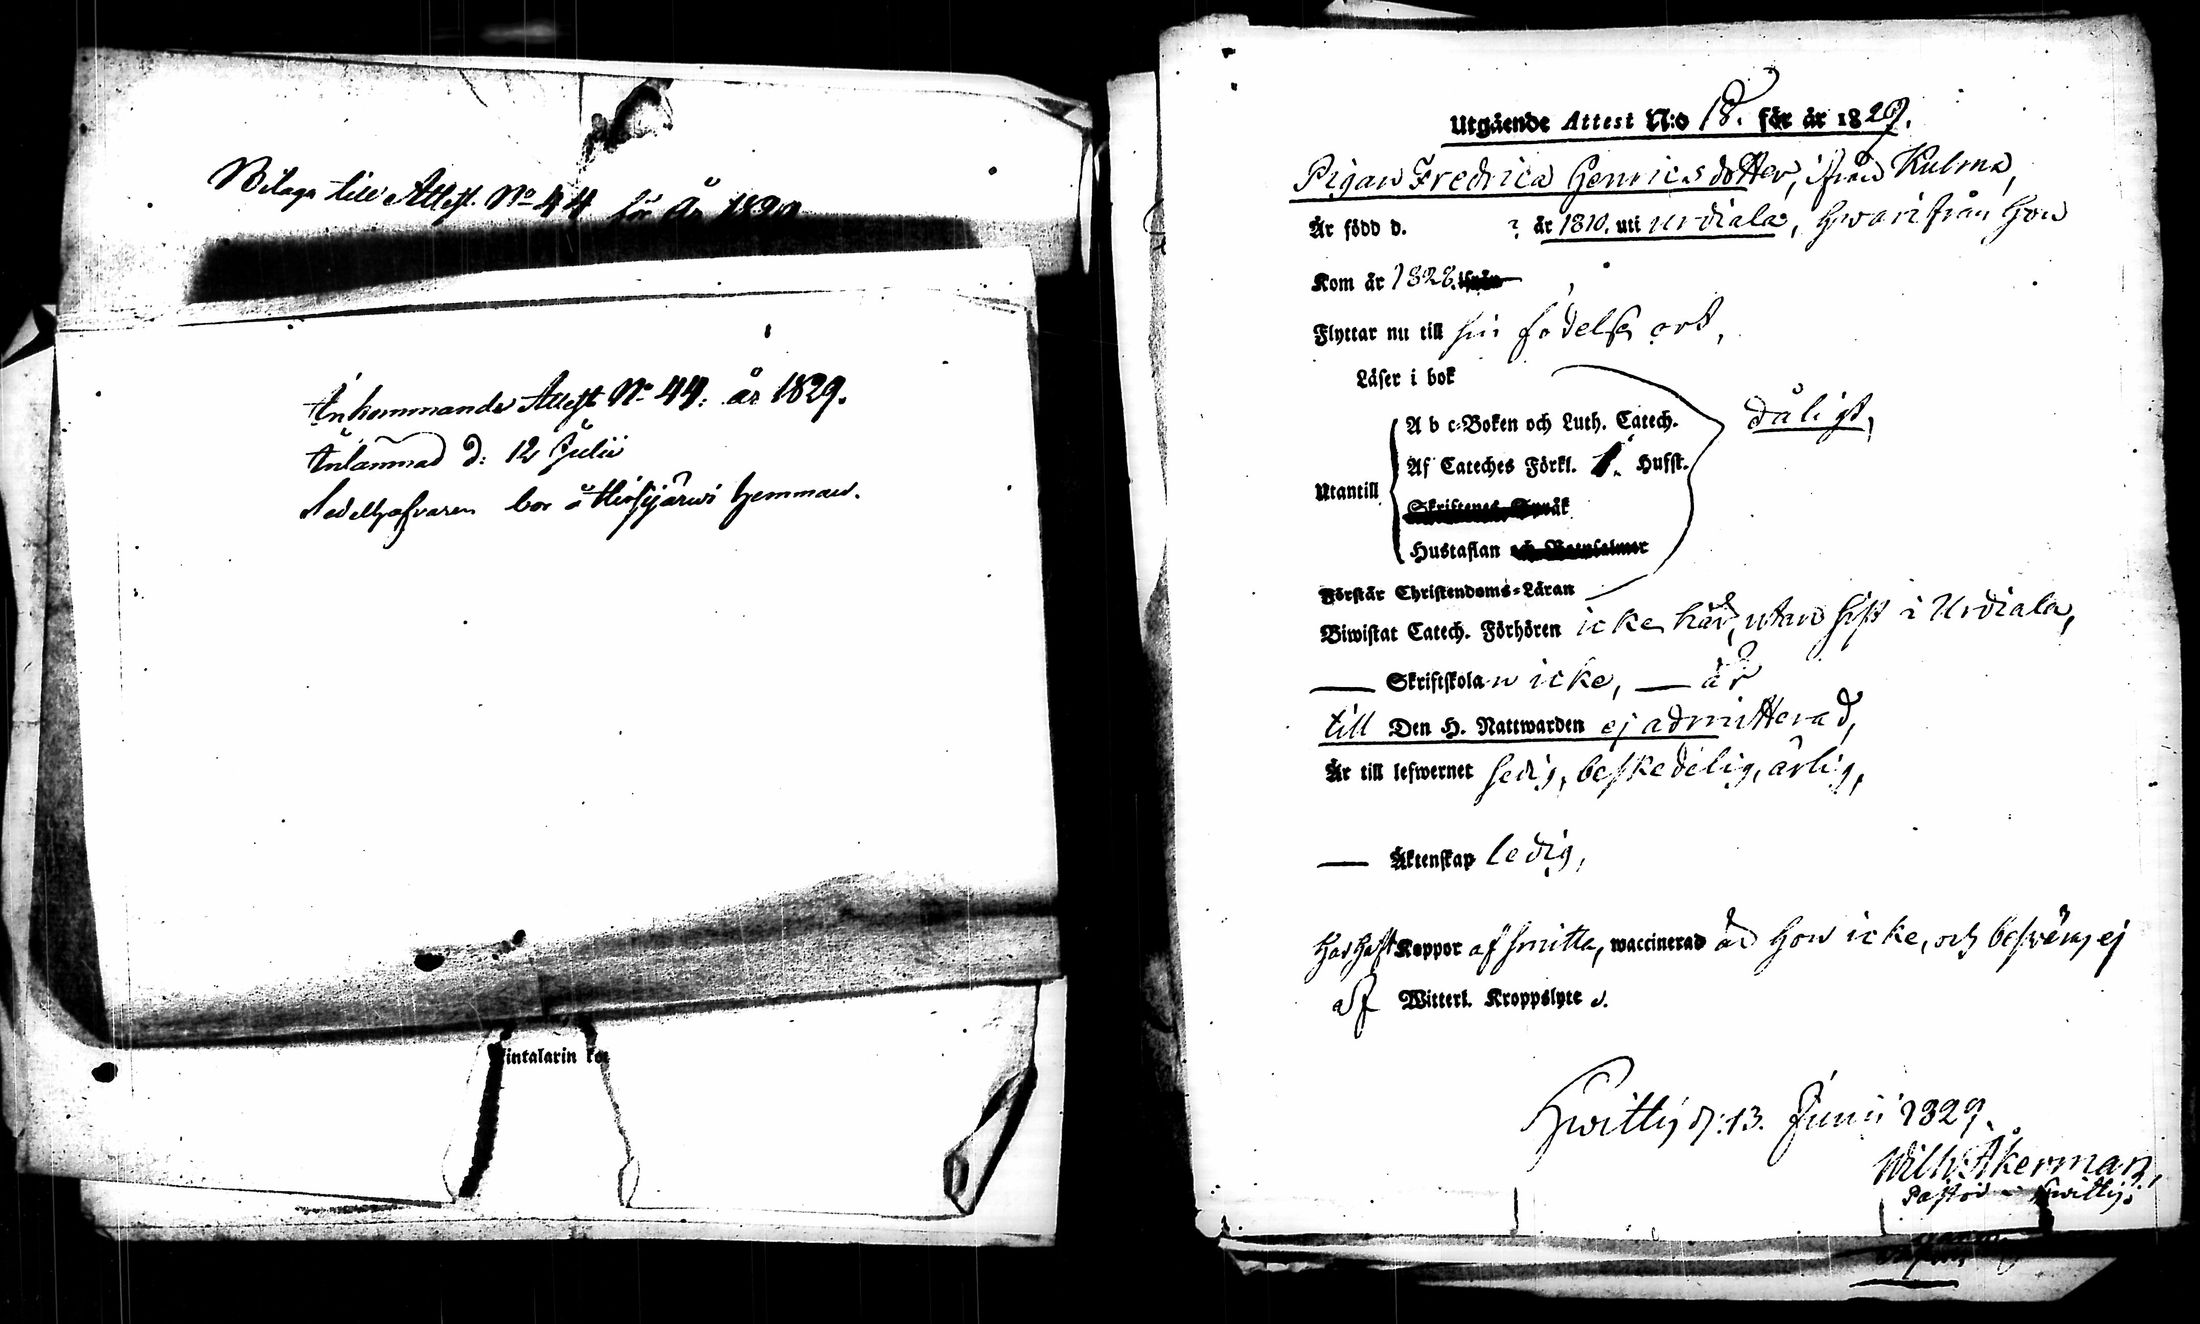 Bilaga till Attest No 44 för År 1829
Inkommande Attest No 44. år 1829.
Inlämnad d: 12 Julii
Sedelhafvaren bor å Hirsjärwi hemman.
intalarin
Utgående Attest N:o 18. för år 1829.
Pigan Fredrica Henricsdotter, ifrån Kulma,
Är född d. ? år 1810. uti Urdiala, hwarifrån hon
Kom år 1828. ifrån
Flyttar nu till sin födelse ort,
Läser i bok
A b c-Boken och Luth. Catech.
dåligt,
Af Cateches Förkl. 1. Hufst.
Utantill
Skriftenes Språk
Hustaflan och Botpsalmer
Förstår Christendoms-Läran
Biwistat Catech. Förhören icke här, utan sist i Urdiala,
— Skriftskolan icke, — är
till Den H. Nattwarden ej admitterad,
Är till lefwernet sedig, beskedelig, ärlig,
— Äktenskap ledig,
Har haft Koppor af smitta, waccinerad är hon icke, och beswäras ej
af Witterl. Kroppslyte.
Hwittis d: 13. Junii 1829.
Wilh: Åkerman,
Pastor i Hwittis.